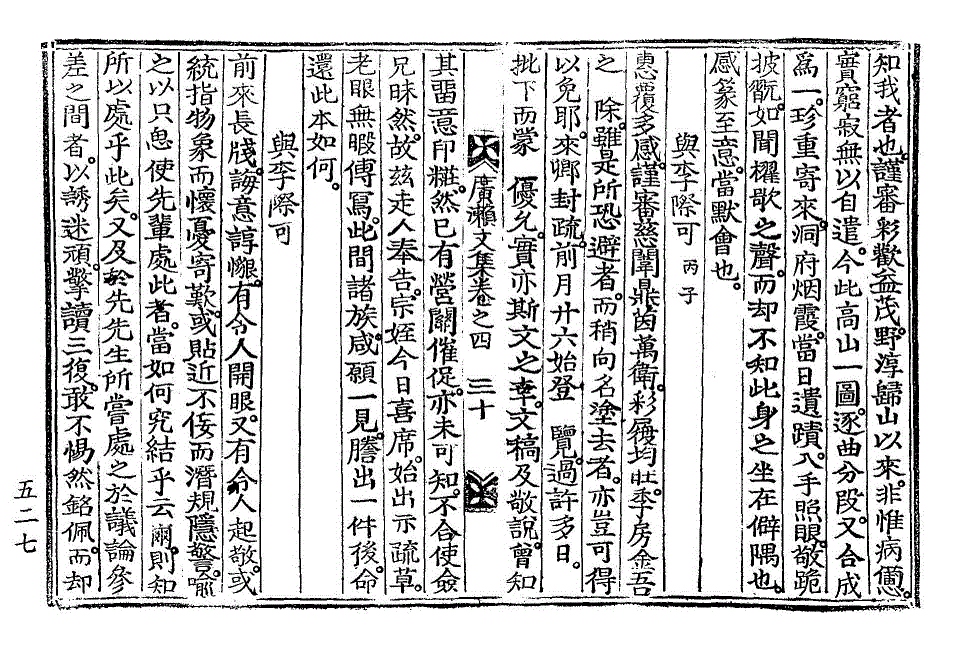 知我者也謹審彩歡益茂野淳歸山以來非惟病憊
實窮寂無以自遣今此高山一圖逐曲分段又合成
爲一珍重寄來洞府烟霞當日遺蹟入手照眼敬跪
披翫如聞櫂歌之聲而却不知此身之坐在僻隅也
感篆至意當默會也
與李際可 丙子
惠覆多感謹審慈闈鼎茵萬衛彩履均旺季房金吾
之 除雖是所恐避者而稍向名塗去者亦豈可得
以免耶來鄕封疏前月廿六始登 覽過許多日
批下而蒙 優允實亦斯文之幸文稿及敬說曾知
廣瀨文集卷之四 三十
其留意印粧然已有營關催促亦未可知不合使僉
兄昧然故玆走人奉告宗姪今日喜席始出示疏草
老眼無暇傳寫此間諸族咸願一見謄出一件後命
還此本如何
與李際可
前來長牋誨意諄懇有令人開眼又有令人起敬或
統指物象而懷憂寄歎或貼近不侫而潛規隱警喩
之以只恁使先輩處此者當如何究結乎云爾則知
所以處乎此矣又及於先先生所嘗處之於議論參
差之間者以誘迷頑擎讀三復敢不惕然銘佩而却
五二七